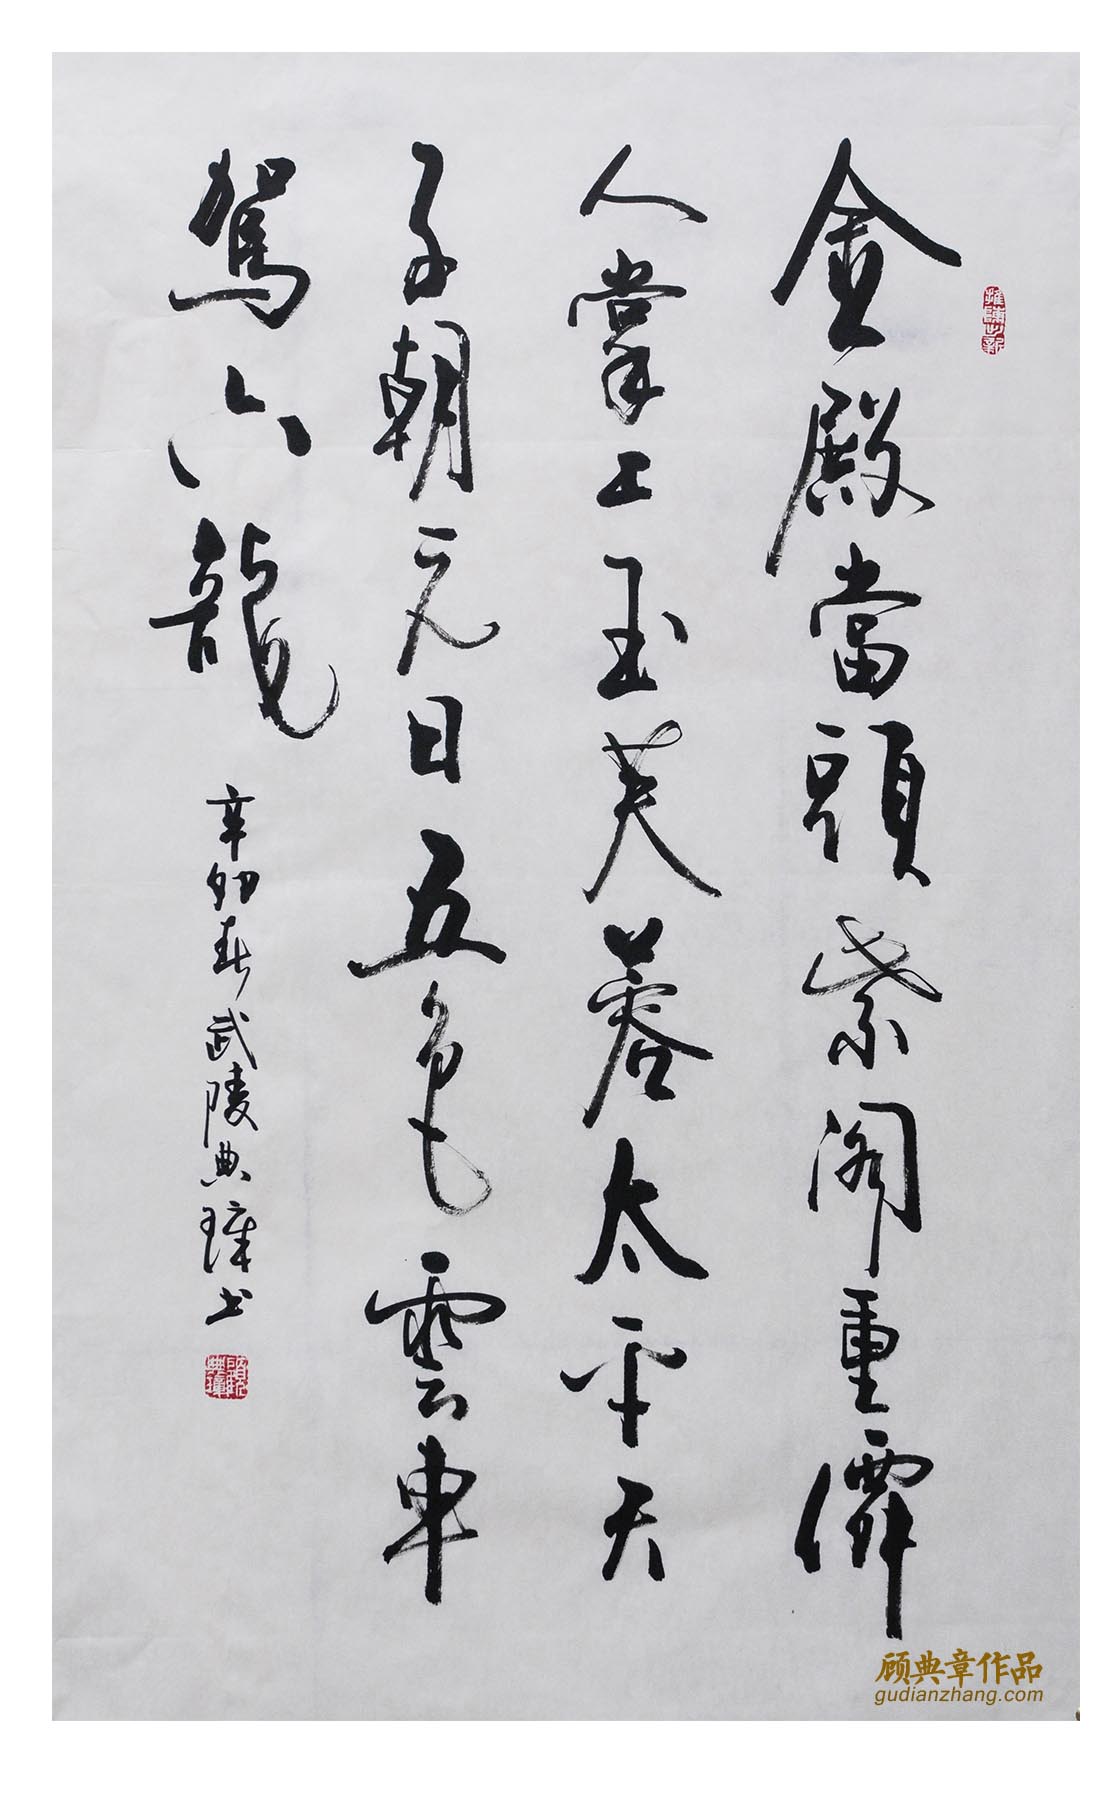 金殿當頭紫閣重僊
人掌上玉芙蓉太平天
子朝元日五色雲車
駕六龍
辛卯春武陵典璋书
推陳出新
顧典璋
顾典章作品
gudianzhang.com